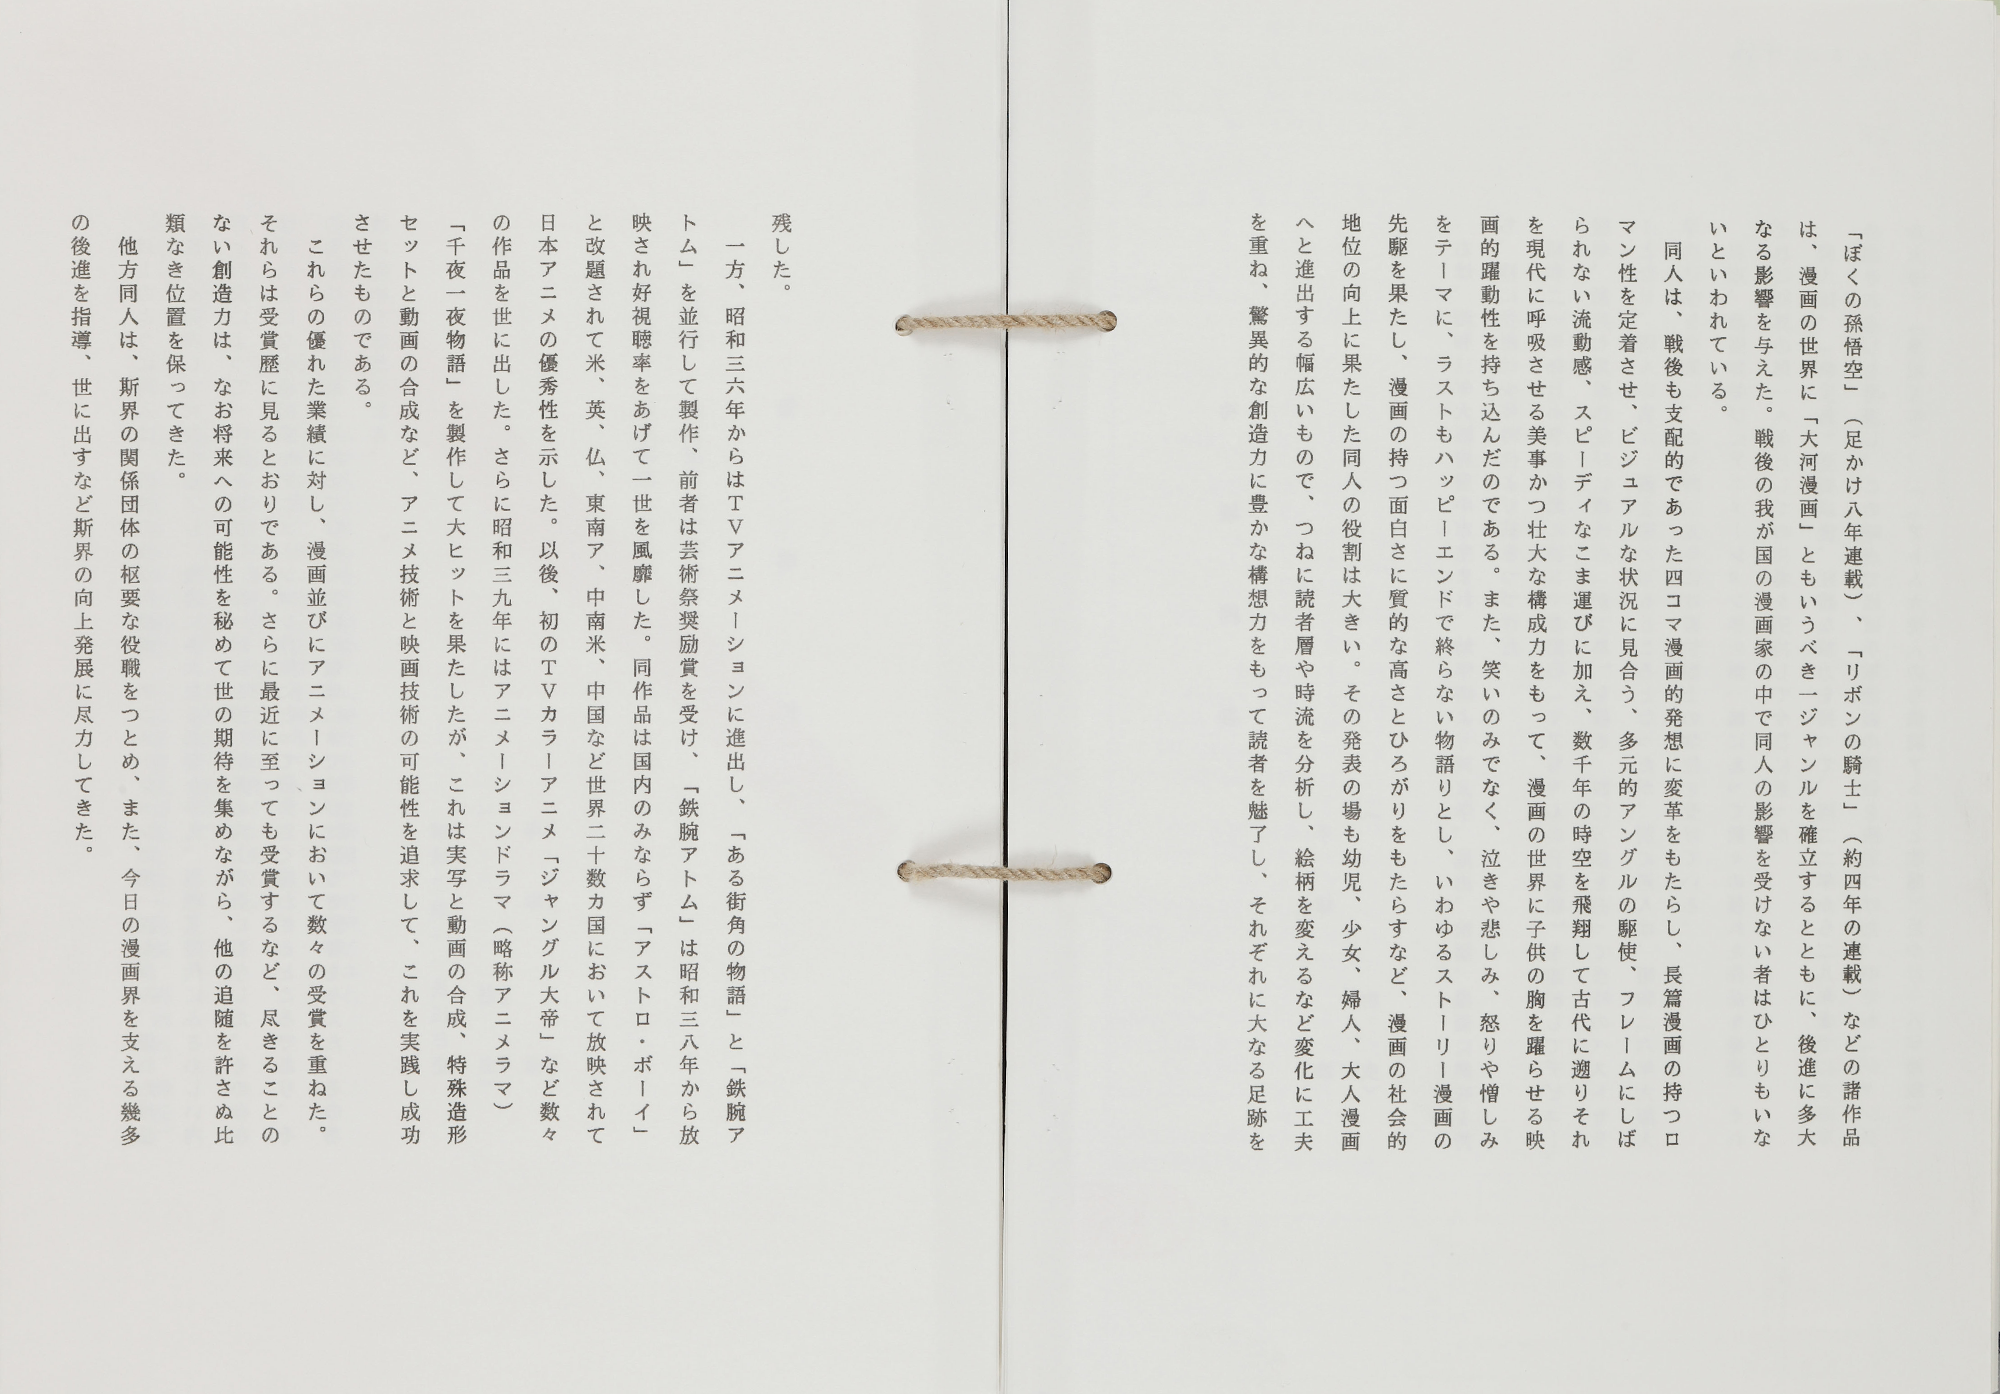 「ぼくの孫悟空」（足かけ八年連載）、「リボンの騎士」（約四年の連載）などの諸作品
は、漫画の世界に「大河漫画」ともいうべき一ジャンルを確立するとともに、後進に多大
なる影響を与えた。戦後の我が国の漫画家の中で同人の影響を受けない者はひとりもいな
いといわれている。
同人は、戦後も支配的であった四コマ漫画的発想に変革をもたらし、長篇漫画の持つロ
マン性を定着させ、ビジュアルな状況に見合う、多元的アングルの駆使、フレームにしば
られない流動感、スピーディなこま運びに加え、数千年の時空を飛翔して古代に遡りそれ
を現代に呼吸させる美事かつ壮大な構成力をもって、漫画の世界に子供の胸を躍らせる映
画的躍動性を持ち込んだのである。また、笑いのみでなく、泣きや悲しみ、怒りや憎しみ
をテーマに、ラストもハッピーエンドで終らない物語りとし、いわゆるストーリー漫画の
先駆を果たし、漫画の持つ面白さに質的な高さとひろがりをもたらすなど、漫画の社会的
地位の向上に果たした同人の役割は大きい。その発表の場も幼児、少女、婦人、大人漫画
へと進出する幅広いもので、つねに読者層や時流を分析し、絵柄を変えるなど変化に工夫
を重ね、驚異的な創造力に豊かな構想力をもって読者を魅了し、それぞれに大なる足跡を
残した。
一方、昭和三六年からはTVアニメーションに進出し、「ある街角の物語」と「鉄腕ア
トム」を並行して製作、前者は芸術祭奨励賞を受け、「鉄腕アトム」は昭和三八年から放
映され好視聴率をあげて一世を風靡した。同作品は国内のみならず「アストロ・ボーイ」
と改題されて米、英、仏、東南ア、中南米、中国など世界二十数カ国において放映されて
日本アニメの優秀性を示した。以後、初のTVカラーアニメ「ジャングル大帝」など数々
の作品を世に出した。さらに昭和三九年にはアニメーションドラマ（略称アニメラマ）
「千夜一夜物語」を製作して大ヒットを果たしたが、これは実写と動画の合成、特殊造形
セットと動画の合成など、アニメ技術と映画技術の可能性を追求して、これを実践し成功
させたものである。
これらの優れた業績に対し、漫画並びにアニメーションにおいて数々の受賞を重ねた。
それらは受賞歴に見るとおりである。さらに最近に至っても受賞するなど、尽きることの
ない創造力は、なお将来への可能性を秘めて世の期待を集めながら、他の追随を許さぬ比
類なき位置を保ってきた。
他方同人は、斯界の関係団体の枢要な役職をつとめ、また、今日の漫画界を支える幾多
の後進を指導、世に出すなど斯界の向上発展に尽力してきた。